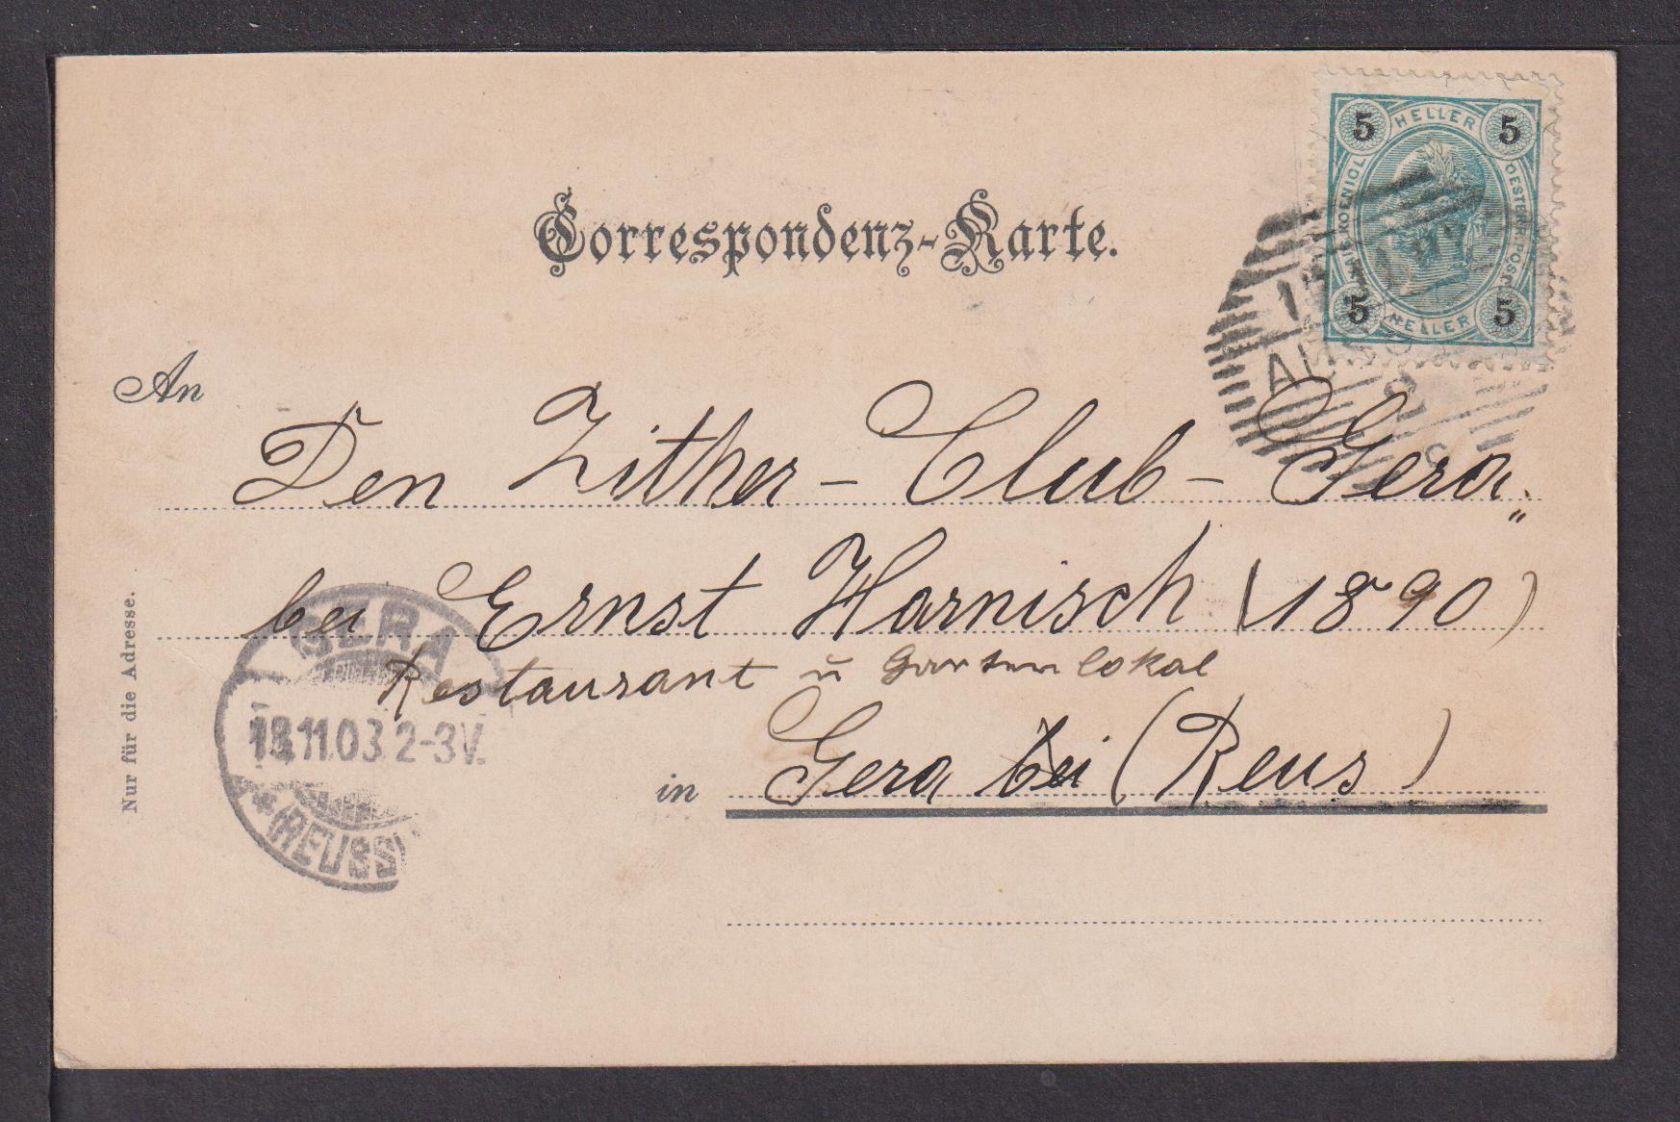 5 HELLER 5
KOENIGL
OESTERR. POST
5 HELLER 5
Correspondenz-Karte.
An
Den Zither - Club - Gera„
bei Ernst Harnisch (1890)
Restaurant u Gartenlokal
in Gera bei (Reus)
Nur für die Adresse.
GERA
11.03. 2-3V.
(REUSS)